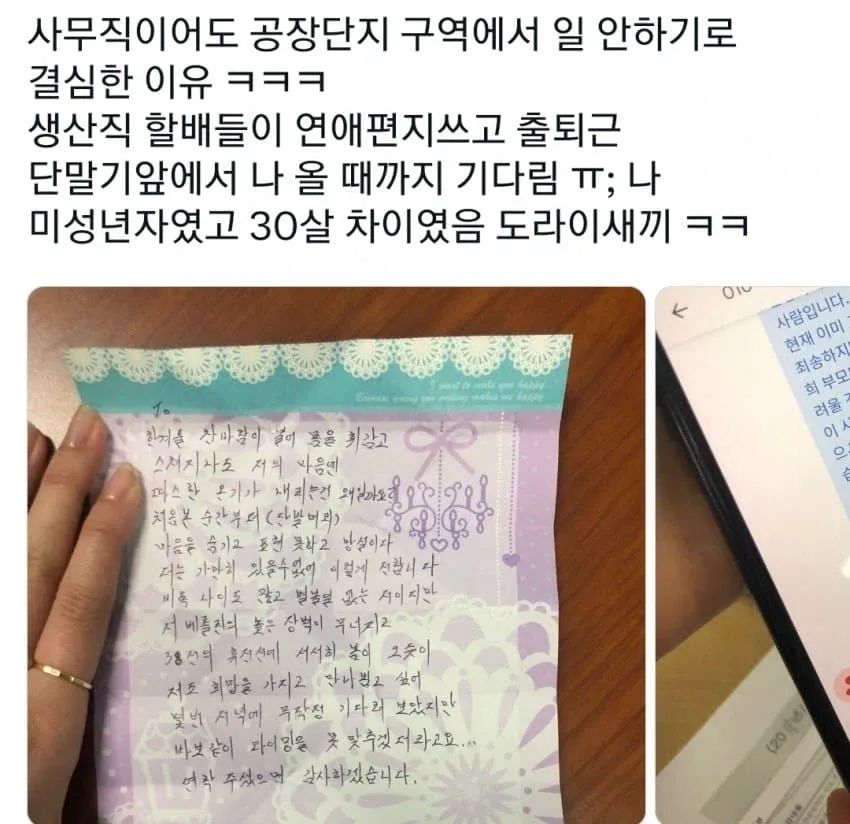 사무직이어도 공장단지 구역에서 일 안하기로
결심한 이유 ㅋㅋㅋ
생산직 할배들이 연애편지쓰고 출퇴근
단말기앞에서 나 올 때까지 기다림 ㅠ; 나
미성년자였고 30살 차이였음 도라이새끼 ㅋㅋ
I want to make you happy
Because among you smiling makes me happy
To
한겨울 찬바람이 불어 몸을 휘감고
스쳐지나도 저의 마음엔
따스한 온기가 내리는건 왜일까요?
처음본 순간부터 (단발머리)
마음을 숨기고 표현 못하고 망설이다
더는 가만히 있을수없어 이렇게 전합니다
비록 나이도 많고 별볼일 없는 저이지만
저 베를린의 높은 장벽이 무너지고
38선의 휴전선에 서서히 봄이 오듯이
저도 희망을 가지고 만나뵙고 싶어
몇번 저녁에 무작정 기다려 보았지만
바보같이 타이밍을 못 맞추겠더라고요...
연락 주셨으면 감사하겠습니다.
← 010
사람입니다.
현재 이미
죄송하지
희 부모
려울
이 사
으
습